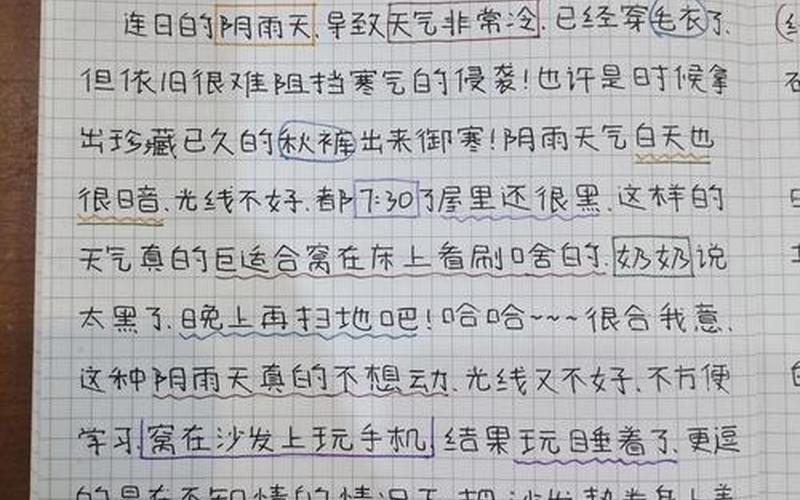 连日的阴雨天.导致天气非常冷.已经穿毛衣了.
但依旧很难阻挡寒气的侵袭!也许是时候拿
出珍藏已久的秋裤出来御寒!阴雨天气白天也
很暗.光线不好.都7:30了屋里还很黑.这样的
天气真的巨适合窝在床上看刷啥的.奶奶说
太黑了.晚上再扫地吧!哈哈~~~很合我意.
这种阴雨天真的不想动.光线又不好.不方便
学习.窝在沙发上玩手机.结果玩睡着了.更逗
的是在不知情的情况下.把沙发垫